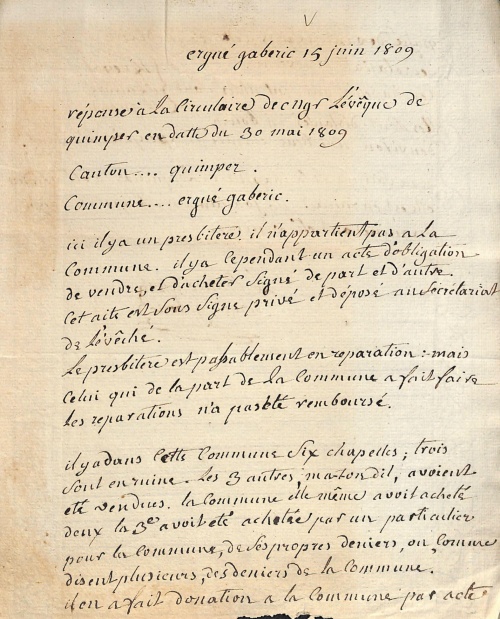 ergué gaberic 15 juin 1809
réponse a la Circulaire de mgr L'évêque de
quimper en datte du 30 mai 1809
Canton .... quimper.
Commune .... ergué gaberic.
ici il y a un presbitere, il n'appartient pas a la
Commune. il y a Cependant un acte d'obligation
de vendre, et d'acheter Signé de part et d'autre.
Cet acte est Sous Signe privé et déposé au Secrétariat
de L'évêché.
Le presbitere est passablement en reparation : mais
Celui qui de la part de la Commune a fait faire
les reparations n'a pas été remboursé.
il y a dans Cette Commune Six chapelles ; trois
Sont en ruine. Les 3 autres, ma-t-on dit, avoient
été vendues. la Commune elle même avoit acheté
deux la 3e avoit été achetée par un particulier
pour la Commune, de Ses propres deniers, ou Comme
disent plusieurs, des deniers de la Commune.
il en a fait donation a la Commune par acte